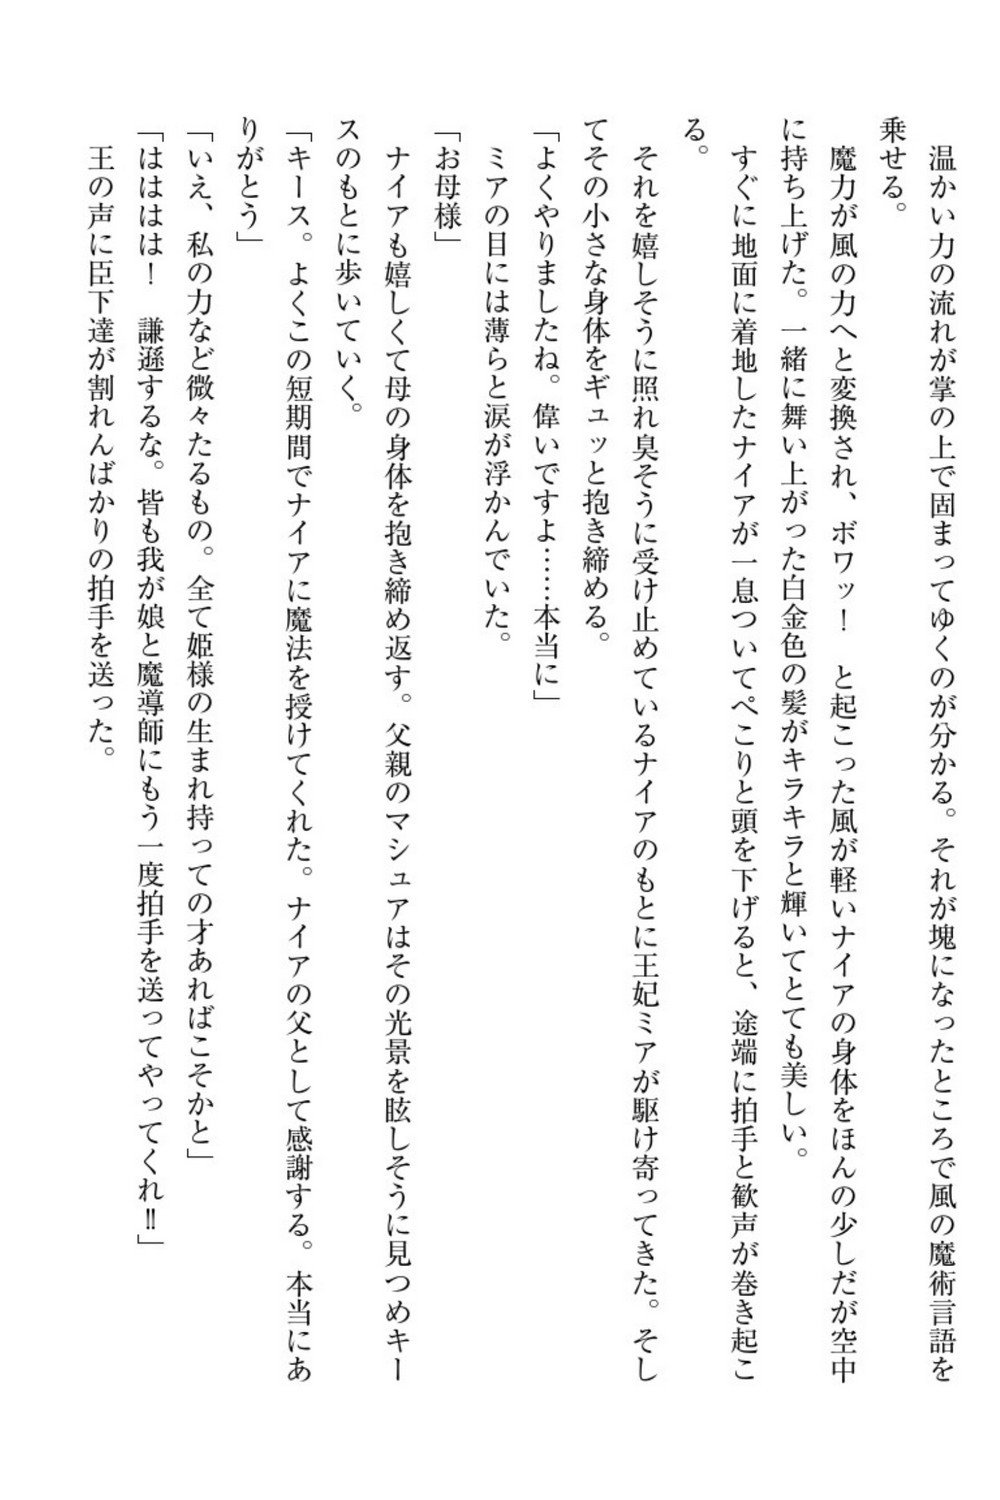 温かい力の流れが掌の上で固まってゆくのが分かる。それが塊になったところで風の魔術言語を
乗せる。
　魔力が風の力へと変換され、ボワッ！　と起こった風が軽いナイアの身体をほんの少しだが空中
に持ち上げた。一緒に舞い上がった白金色の髪がキラキラと輝いてとても美しい。
　すぐに地面に着地したナイアが一息ついてぺこりと頭を下げると、途端に拍手と歓声が巻き起こ
る。
　それを嬉しそうに照れ臭そうに受け止めているナイアのもとに王妃ミアが駆け寄ってきた。そし
てその小さな身体をギュッと抱き締める。
「よくやりましたね。偉いですよ……本当に」
　ミアの目には薄らと涙が浮かんでいた。
「お母様」
　ナイアも嬉しくて母の身体を抱き締め返す。父親のマシュアはその光景を眩しそうに見つめキー
スのもとに歩いていく。
「キース。よくこの短期間でナイアに魔法を授けてくれた。ナイアの父として感謝する。本当にあ
りがとう」
「いえ、私の力など微々たるもの。全て姫様の生まれ持っての才あればこそかと」
「はははは！　謙遜するな。皆も我が娘と魔導師にもう一度拍手を送ってやってくれ‼」
　王の声に臣下達が割れんばかりの拍手を送った。